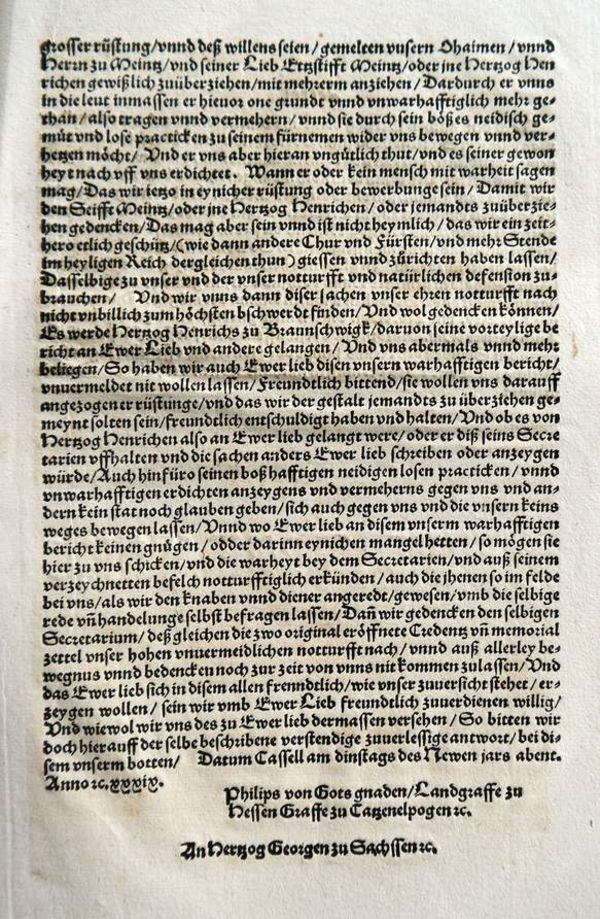 grosser rüstung/vnnd deß willens seien/gemelten vnsern Ohaimen/vnnd
Herrn zu Meintz/vnd seiner Lieb Ertzstifft Meintz/oder jne Hertzog Hen
richen gewißlich zuüberziehen/mit mehrerm anziehen/Dardurch er vnns
in die leut inmassen er hieuor one grundt vnnd vnwarhafftiglich mehr ge-
than/also tragen vnnd vermehern/vnnd sie durch sein bößes neidisch ge-
müt vnd lose practicken zu seinem fürnemen wider vns bewegen vnnd ver-
hetzen möcht/ Vnd er vns aber hieran vngütlich thut/vnd es seiner gewon
heyt nach vff vns erdichtet. Wann er oder kein mensch mit warheit sagen
mag/Das wir ietzo in eynicher rüstung oder bewerbunge sein/Damit wir
den Seifft Meintz/oder jne Hertzog Henrichen/oder jemandts zuüberzie-
hen gedencken/Das mag aber sein vnnd ist nicht heymlich/das wir ein zeit-
hero etlich geschütz/(wie dann andere Chur vnd Fürsten/vnd mehr Stende
im heyligen Reich dergleichen thun) giessen vnnd zürichten haben lassen/
Dasselbige zu vnser vnd der vnser notturfft vnd natürlichen defension zu-
brauchen/ Vnd wir vnns dann diser sachen vnser ehren notturfft nach
nicht vnbillich zum höchsten bschwerdt finden/Vnd wol gedencken können/
Es werde Hertzog Henrichs zu Braunschwigk/daruon seine vorteylige be
richt an Ewer Lieb vnd andere gelangen/Vnd vns abermals vnnd mehr
beliegen/So haben wir auch Ewer lieb disen vnsern warhafftigen bericht/
vnuermeldet nit wollen lassen/Freundtlich bittend/sie wollen vns darauff
angezogener rüstunge/vnd das wir der gestalt jemandts zu überziehen ge-
meynt solten sein/freundtlich entschuldigt haben vnd halten/Vnd ob es von
Hertzog Henrichen also an Ewer lieb gelangt were/oder er diß seins Secre
tarien vffhalten vnd die sachen anders Ewer lieb schreiben oder anzeygen
würde/Auch hinfüro seinen boßhafftigen neidigen losen practicken/vnnd
vnwarhafftigen erdichten anzeygens vnd vermeherns gegen vns vnd an-
dern kein stat noch glauben geben/sich auch gegen vns vnd die vnsern keins
weges bewegen lassen/Vnnd wo Ewer lieb an disem vnserm warhafftigen
bericht keinen gnügen/odder darinn eynichen mangel hetten/so mögen sie
hier zu vns schicken/vnd die warheyt bey dem Secretarien/vnd auß seinem
verzeychnetten befelch notturfftiglich erkünden/auch die jhenen so im felde
bei vns/als wir den knaben vnnd diener angeredt/gewesen/vmb die selbige
rede vn̄ handelunge selbst befragen lassen/Dañ wir gedencken den selbigen
Secretarium/deß gleichen die zwo original eröffnete Credentz vn̄ memorial
zettel vnser hohen vnuermeidlichen notturfft nach/vnnd auß allerley be-
wegnus vnnd bedencken noch zur zeit von vnns nit kommen zulassen/Vnd
das Ewer lieb sich in disem allen frenndtlich/wie vnser zuuersicht stehet/er-
zeygen wollen/sein wir vmb Ewer Lieb freundtlich zuuerdienen willig/
Vnd wiewol wir vns des zu Ewer lieb dermassen versehen/So bitten wir
doch hierauff der selbe beschribene verstendige zuuerlessige antwort/bei di-
sem vnserm botten/ Datum Cassell am dinstags des Newen jars abent.
Anno ꝛc. xxxix.
Philips von Gots gnaden/Landgraffe zu
Hessen Graffe zu Catzenelpogen ꝛc.
An Hertzog Georgen zu Sachssen ꝛc.